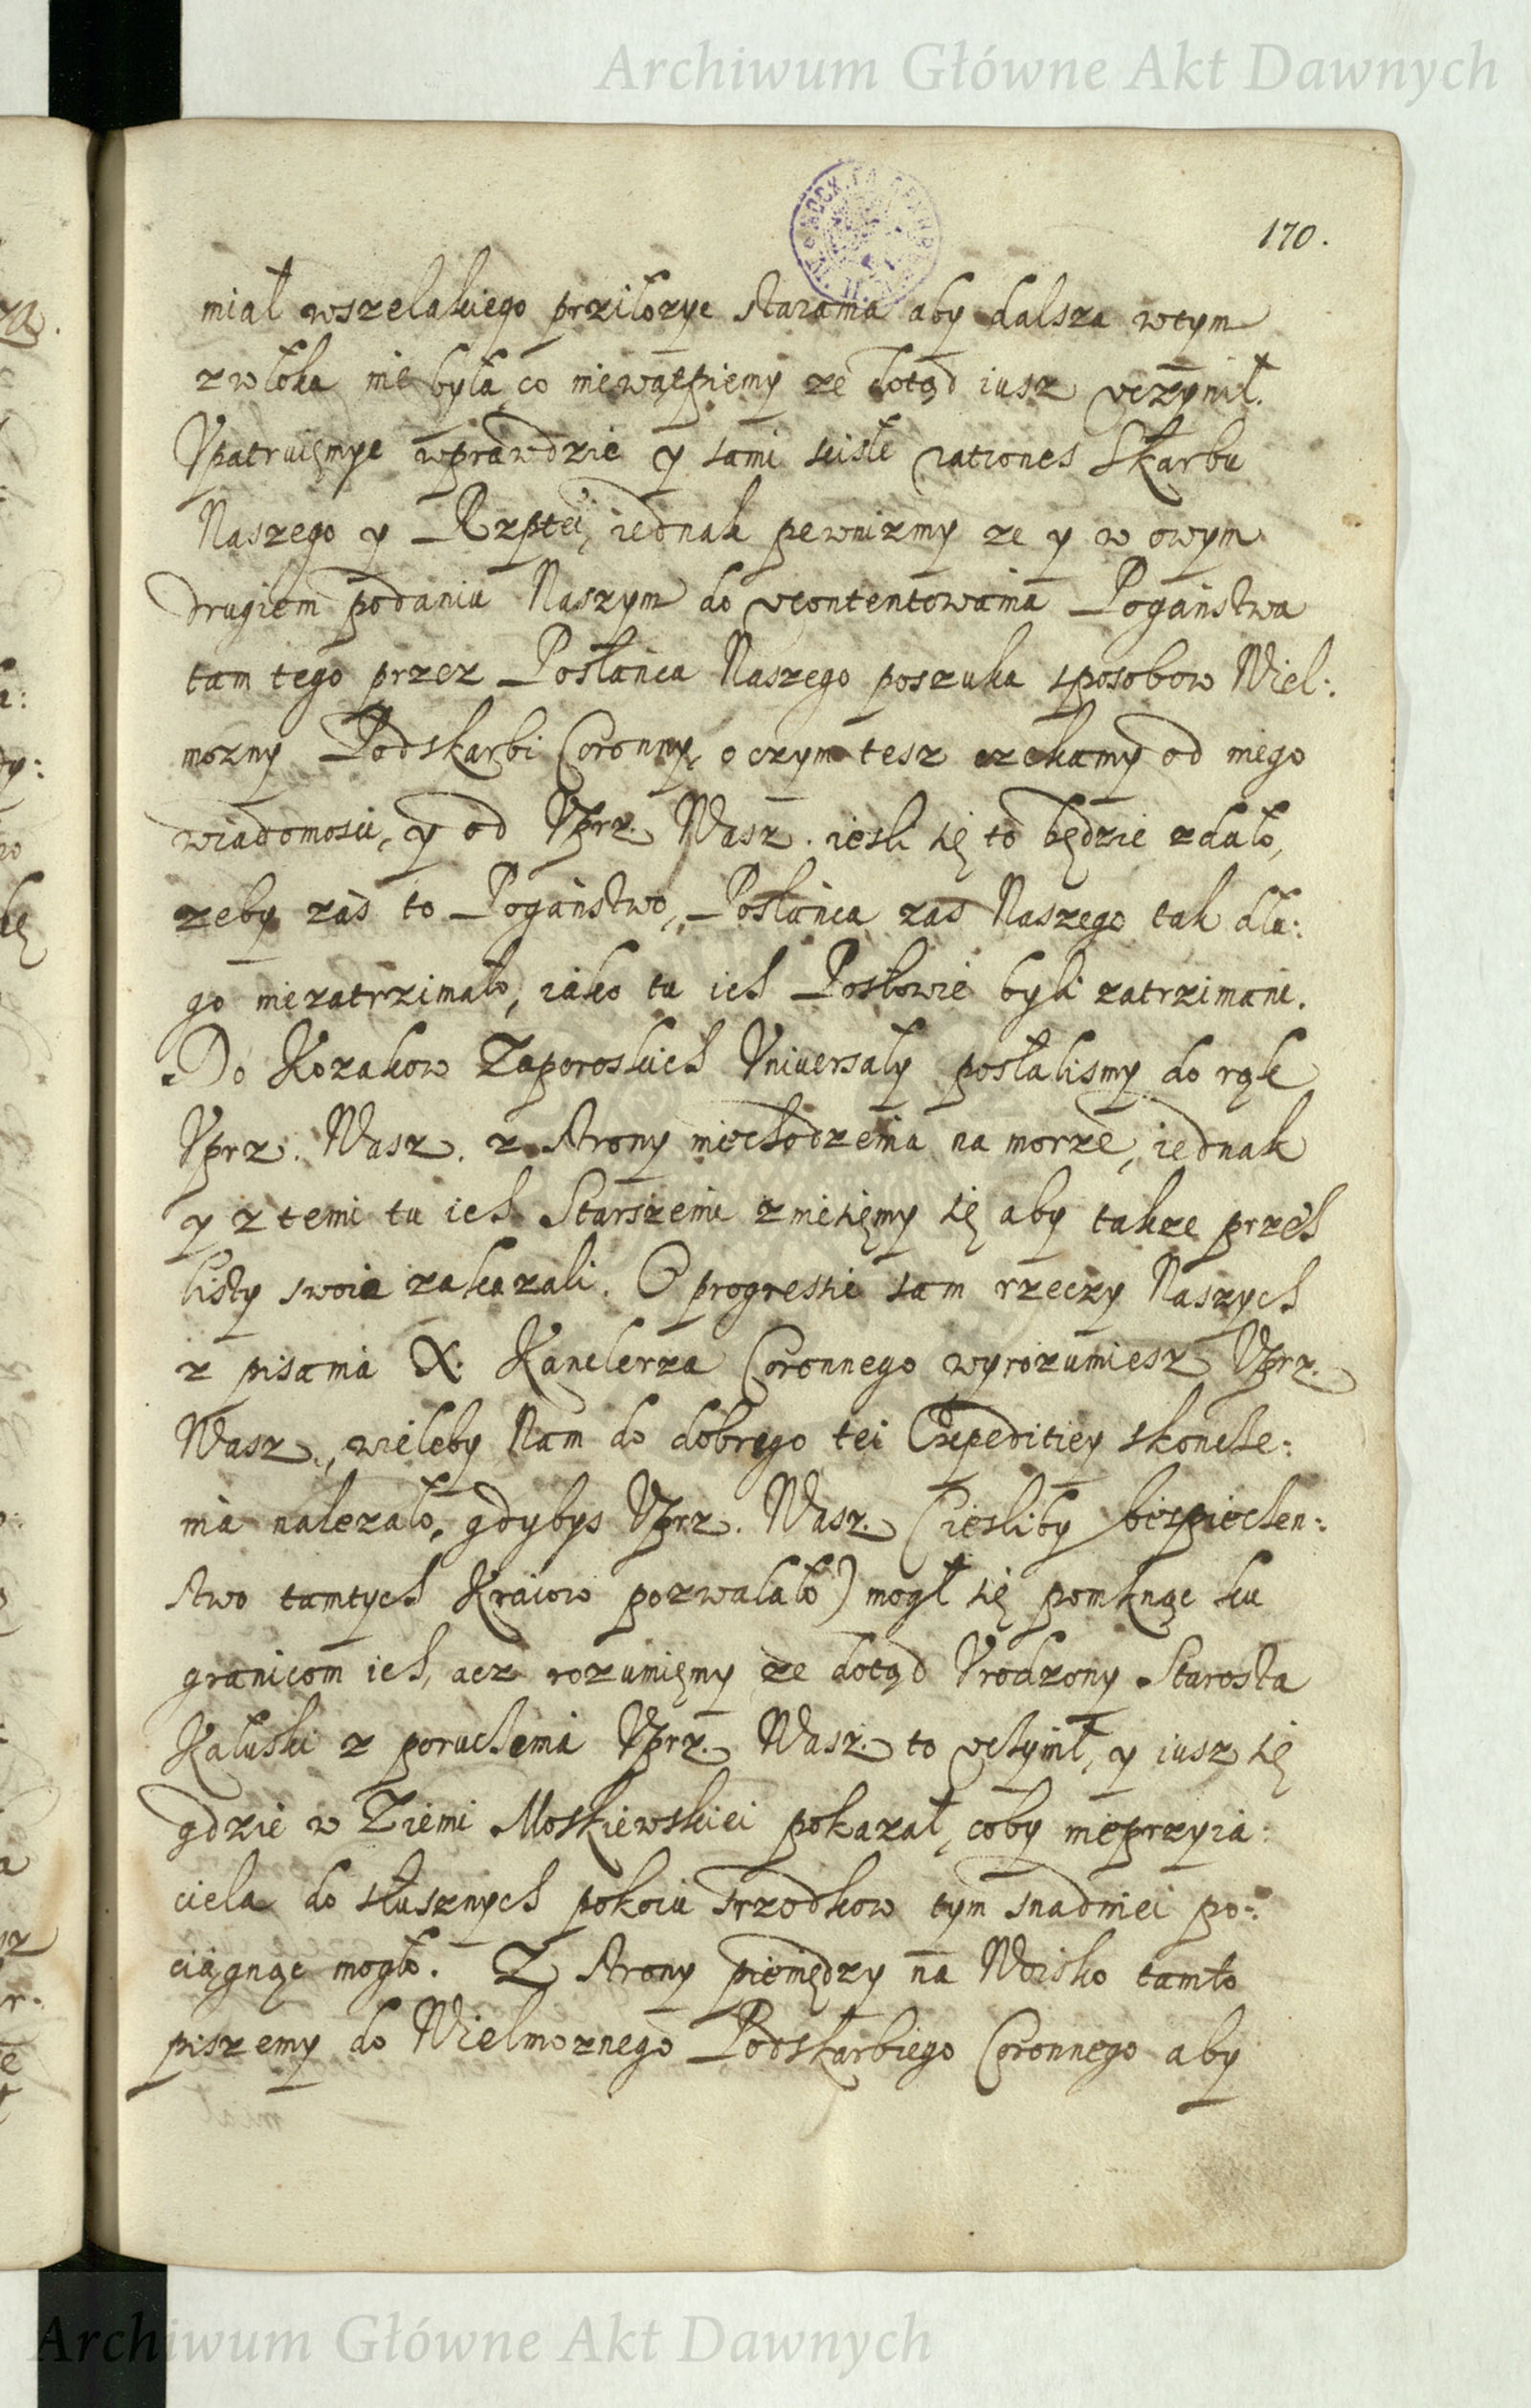 Archiwum Główne Akt Dawnych
170.
miał wszelakiego prziłozyc starania aby dalsza wtym
zwłoka nie była, co niewątpiemy ze dotąd iusz vczynił.
Vpatruięmyc wprawdzie y sami scisłe rationes Skarbu
Naszego y Rzptei, iednak pewnizmy ze y w owym
drugiem podaniu Naszym do vcontentowania Poganstwa
tam tego przez Posłanca Naszego poszuka sposobow Wiel:
mozny Podskarbi Coronny, o czym tesz czekamy od niego
wiadomosci, y od Vprz. Wasz. iesli się to będzie zdało,
zeby zas to Poganstwo, Posłanca zas Naszego tak dłu:
go niezatrzimało, iako tu ich Posłowie byli zatrzimani.
Do Kozakow Zaporoskich Vniuersały posłalismy do rąk
Vprz. Wasz. z strony niechodzenia na morze, iednak
y z temi tu ich Starszemi zniesięmy się aby takze przes
listy swoie zakazali. O progressie tam rzeczy Naszych
z pisania X. Kanclerza Coronnego wyrozumiesz Vprz.
Wasz., wieleby Nam do dobrego tei Expeditiey skoncze:
nia nalezało, gdybys Vprz. Wasz. (iesliby bespieczen:
stwo tamtych Kraiow pozwalało) mogł się pomknąc ku
granicom ich, acz rozumięmy ze dotąd Vrodzony Starosta
Kałuski z poruczenia Vprz. Wasz. to vczynił, y iusz się
gdzie w Ziemi Moskiewskiei pokazał, coby nieprzyia:
ciela do słusznych pokoiu srzodkow tym snadniei po:
ciągnąc mogło. Z strony pieniędzy na Woisko tamto
piszemy do Wielmoznego Podskarbiego Coronnego aby
Archiwum Główne Akt Dawnych